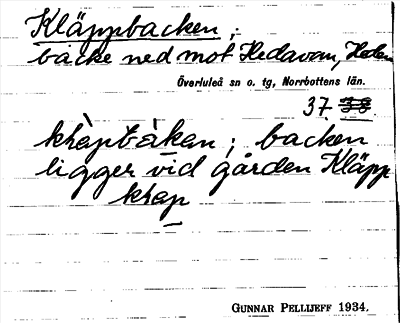 Kläppbacken;
backe ned mot Hedavan, Heden
Överluleå sn o. tg, Norrbottens län.
37 38
kläpbàkan; backen
ligger vid gården Kläpp
klæp
GUNNAR PELLIJEFF 1934.